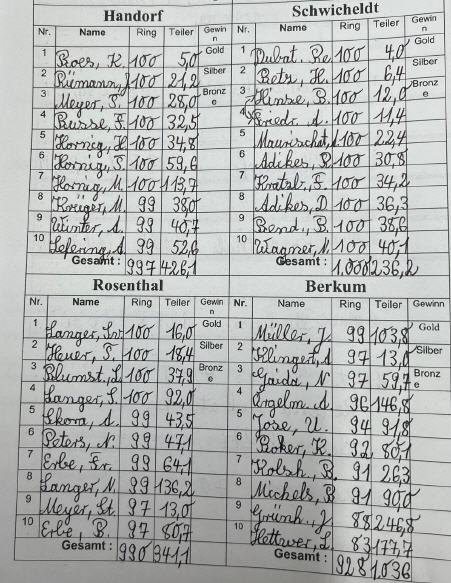 Handorf
Nr. Name Ring Teiler Gewinn
1 Roes, K. 100 5,0 Gold
2 Rümann, J. 100 21,2 Silber
3 Meyer, S. 100 28,0 Bronze
4 Busse, F. 100 32,5
5 Hornig, H. 100 34,8
6 Hornig, S. 100 59,6
7 Hornig, M. 100 113,7
8 Krüger, M. 99 38,0
9 Winter, A. 99 40,7
10 Lefering, A. 99 52,6
Gesamt : 997 426,1
Schwicheldt
Nr. Name Ring Teiler Gewinn
1 Dubat. Re. 100 4,0 Gold
2 Betz, H. 100 6,4 Silber
3 Hinse, B. 100 12,0 Bronze
4 Friedr. A. 100 11,4
5 Maurischat, 100 22,4
6 Adikes, R. 100 30,8
7 Kratzb., F. 100 34,2
8 Adikes, D 100 36,3
9 Bend., B. 100 38,6
10 Wagner, N. 100 40,1
Gesamt : 1.000 236,2
Rosenthal
Nr. Name Ring Teiler Gewinn
1 Langer, 100 16,0 Gold
2 Heuer, T. 100 18,4 Silber
3 Blumst., L. 100 37,9 Bronze
4 Langer, S. 100 92,0
5 Skora, A. 99 43,5
6 Peters, N. 99 47,1
7 Erbe, Fr. 99 64,1
8 Langer, N. 99 136,2
9 Meyer, St. 97 13,0
10 Erbe, B. 97 80,7
Gesamt : 990 341,1
Berkum
Nr. Name Ring Teiler Gewinn
1 Müller, J. 99 103,8 Gold
2 Klinger, A 97 13,0 Silber
3 Gaida, N 97 59,7 Bronze
4 Ergelm. A. 96 146,8
5 Jose, U. 94 91,8
6 Boker, K. 92 80,1
7 Kolsch, B. 91 26,3
8 Michels, B 91 90,0
9 Grünh., J 88 246,8
10 Hettwer, L. 83 177,7
Gesamt : 928 1036